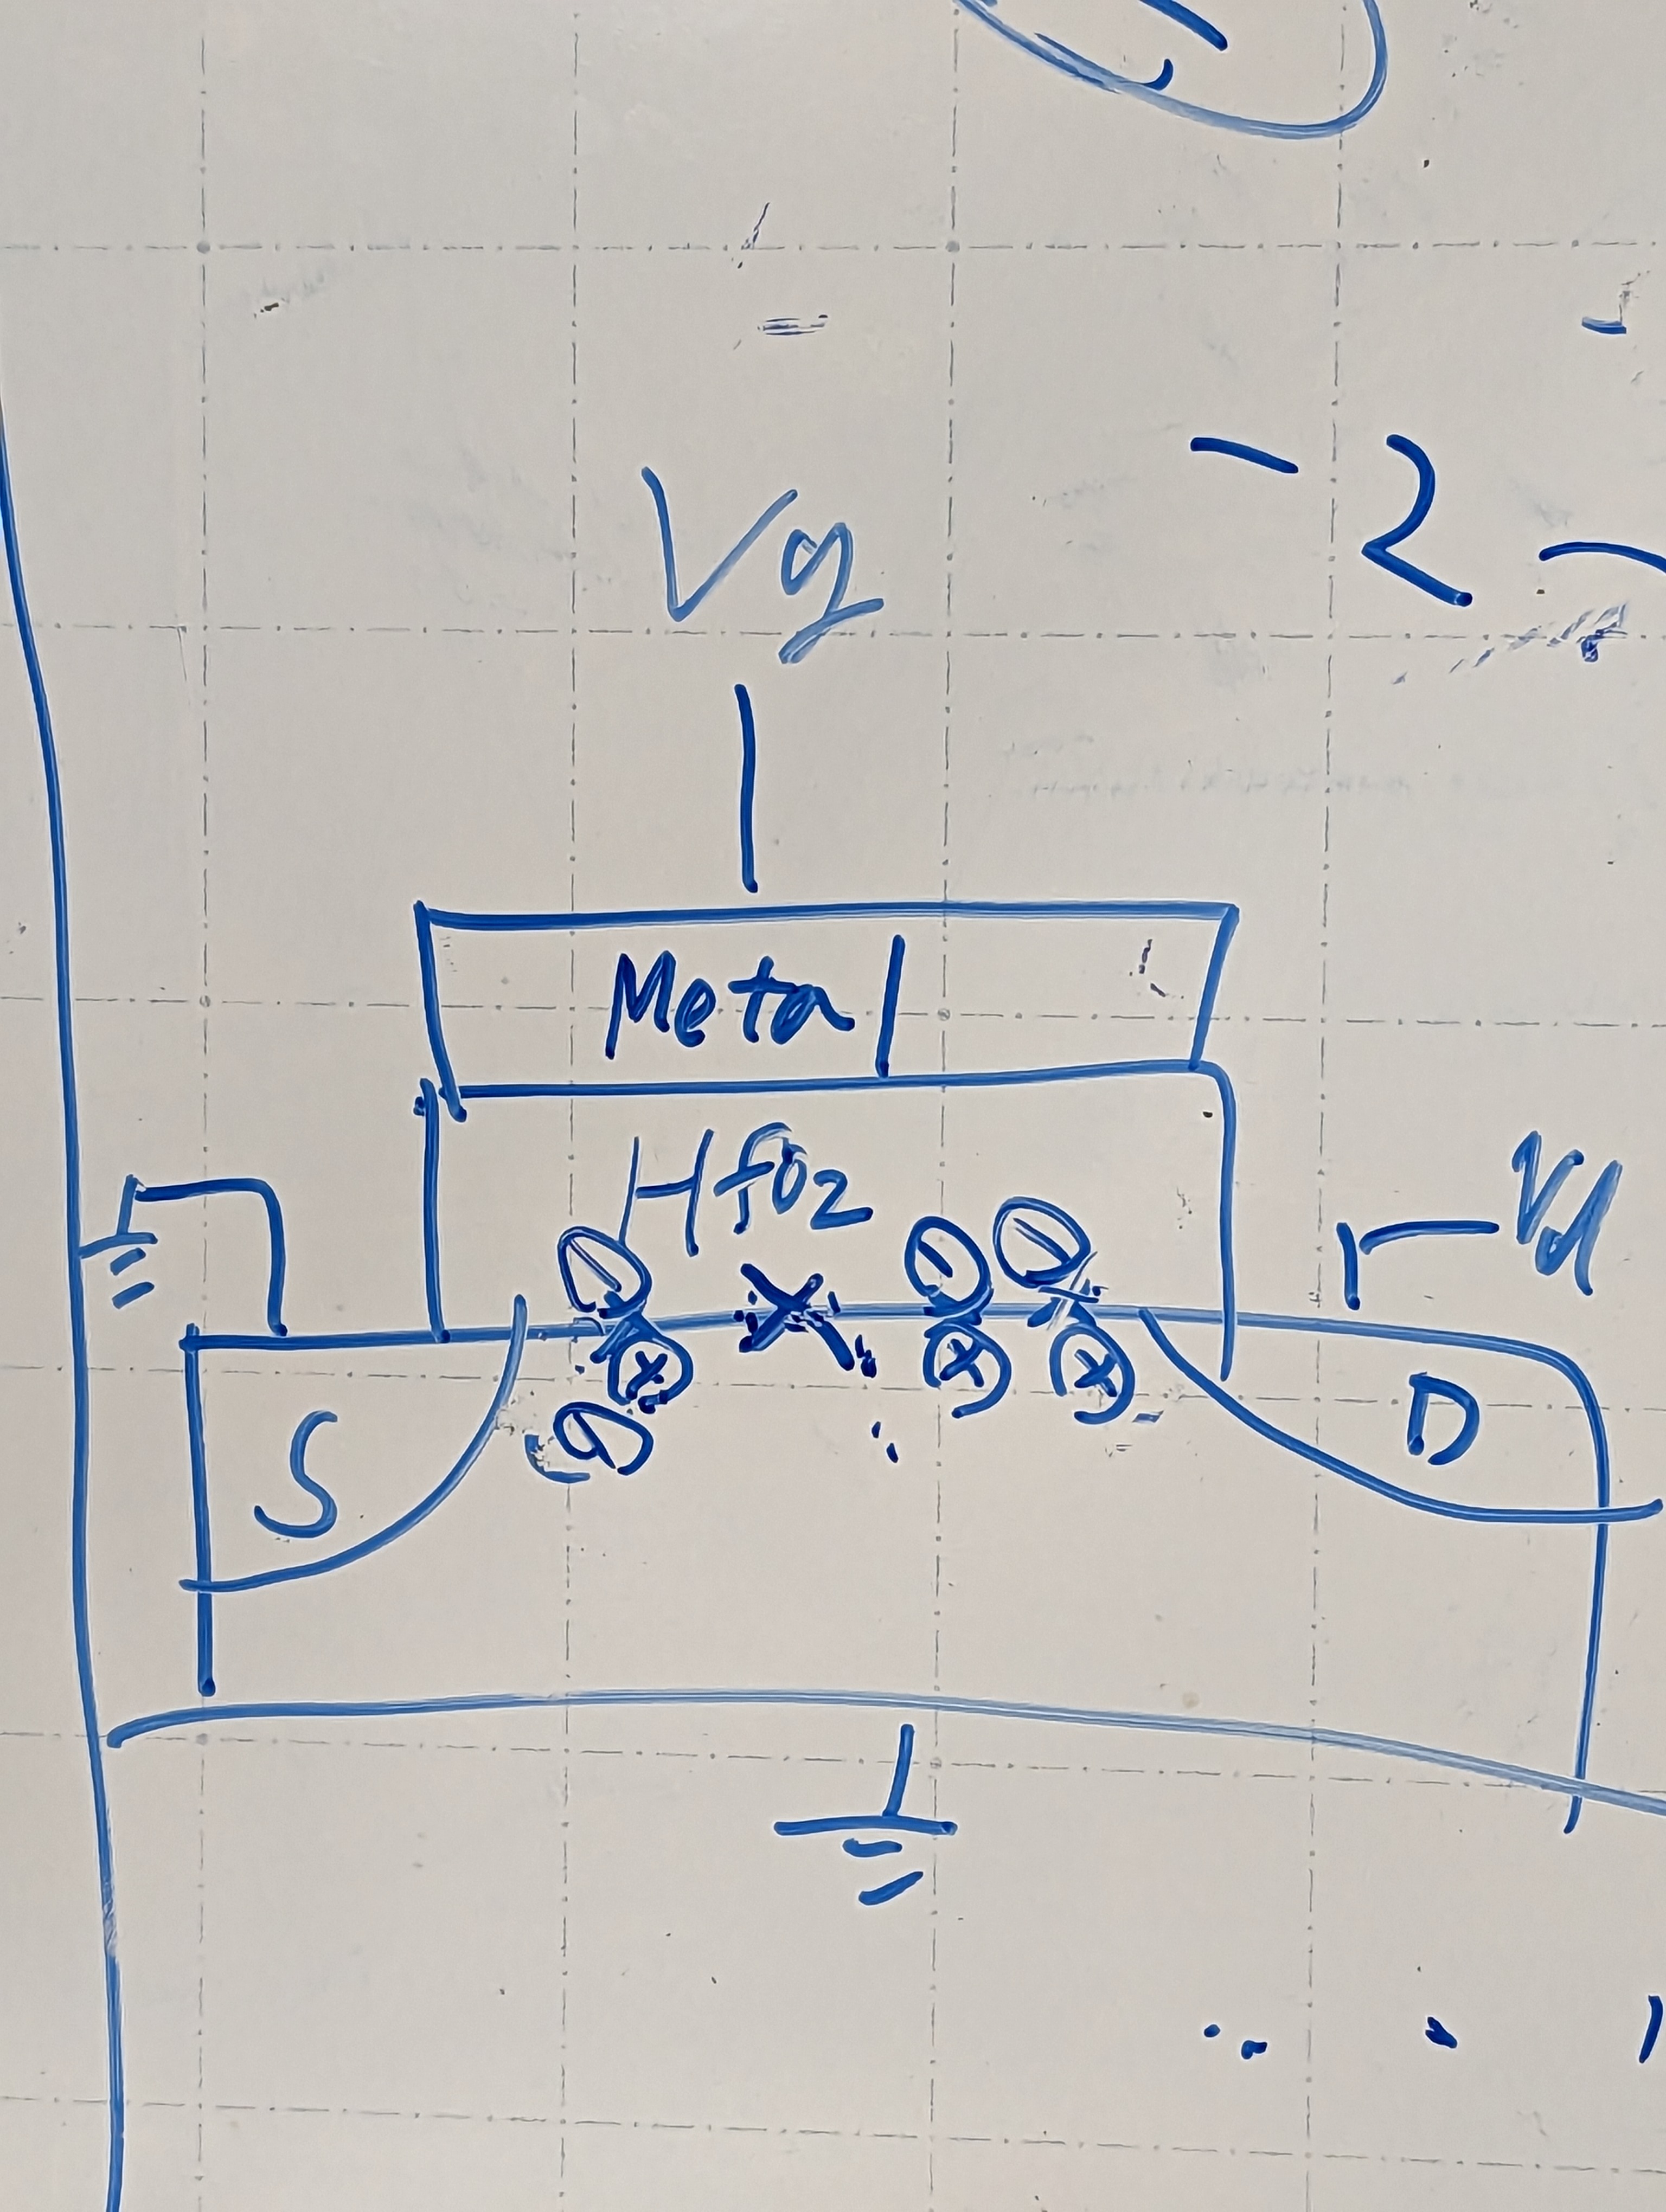 -2
Vg
Metal
HfO2
Vd
S
D